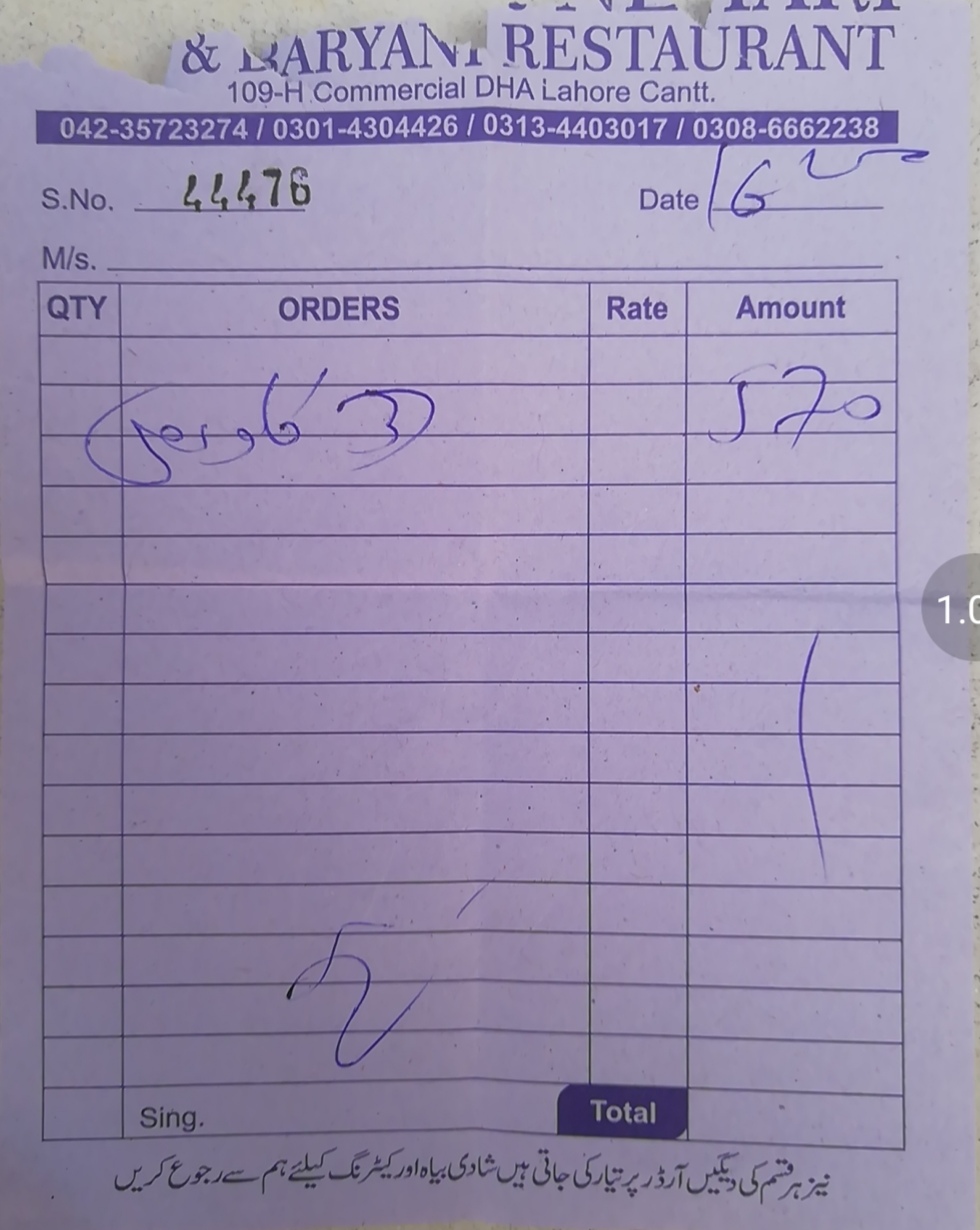 & BARYANI RESTAURANT
109-H Commercial DHA Lahore Cantt.
042-35723274 / 0301-4304426 / 0313-4403017 / 0308-6662238
S.No. 44476 Date 16
M/s.
QTY ORDERS Rate Amount
3 570
Sing. Total
نیز ہر قسم کی دیگیں آرڈر پر تیار کی جاتی ہیں شادی بیاہ اور کیٹرنگ کیلئے ہم سے رجوع کریں
1.0